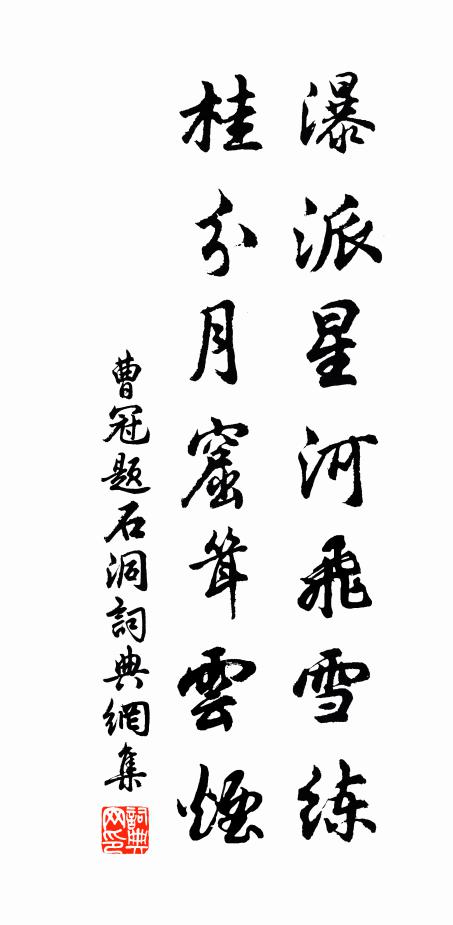 瀑派星河飛雪练
桂分月窟耸雲煙
曹冠题石洞詞典網集
詞典网印